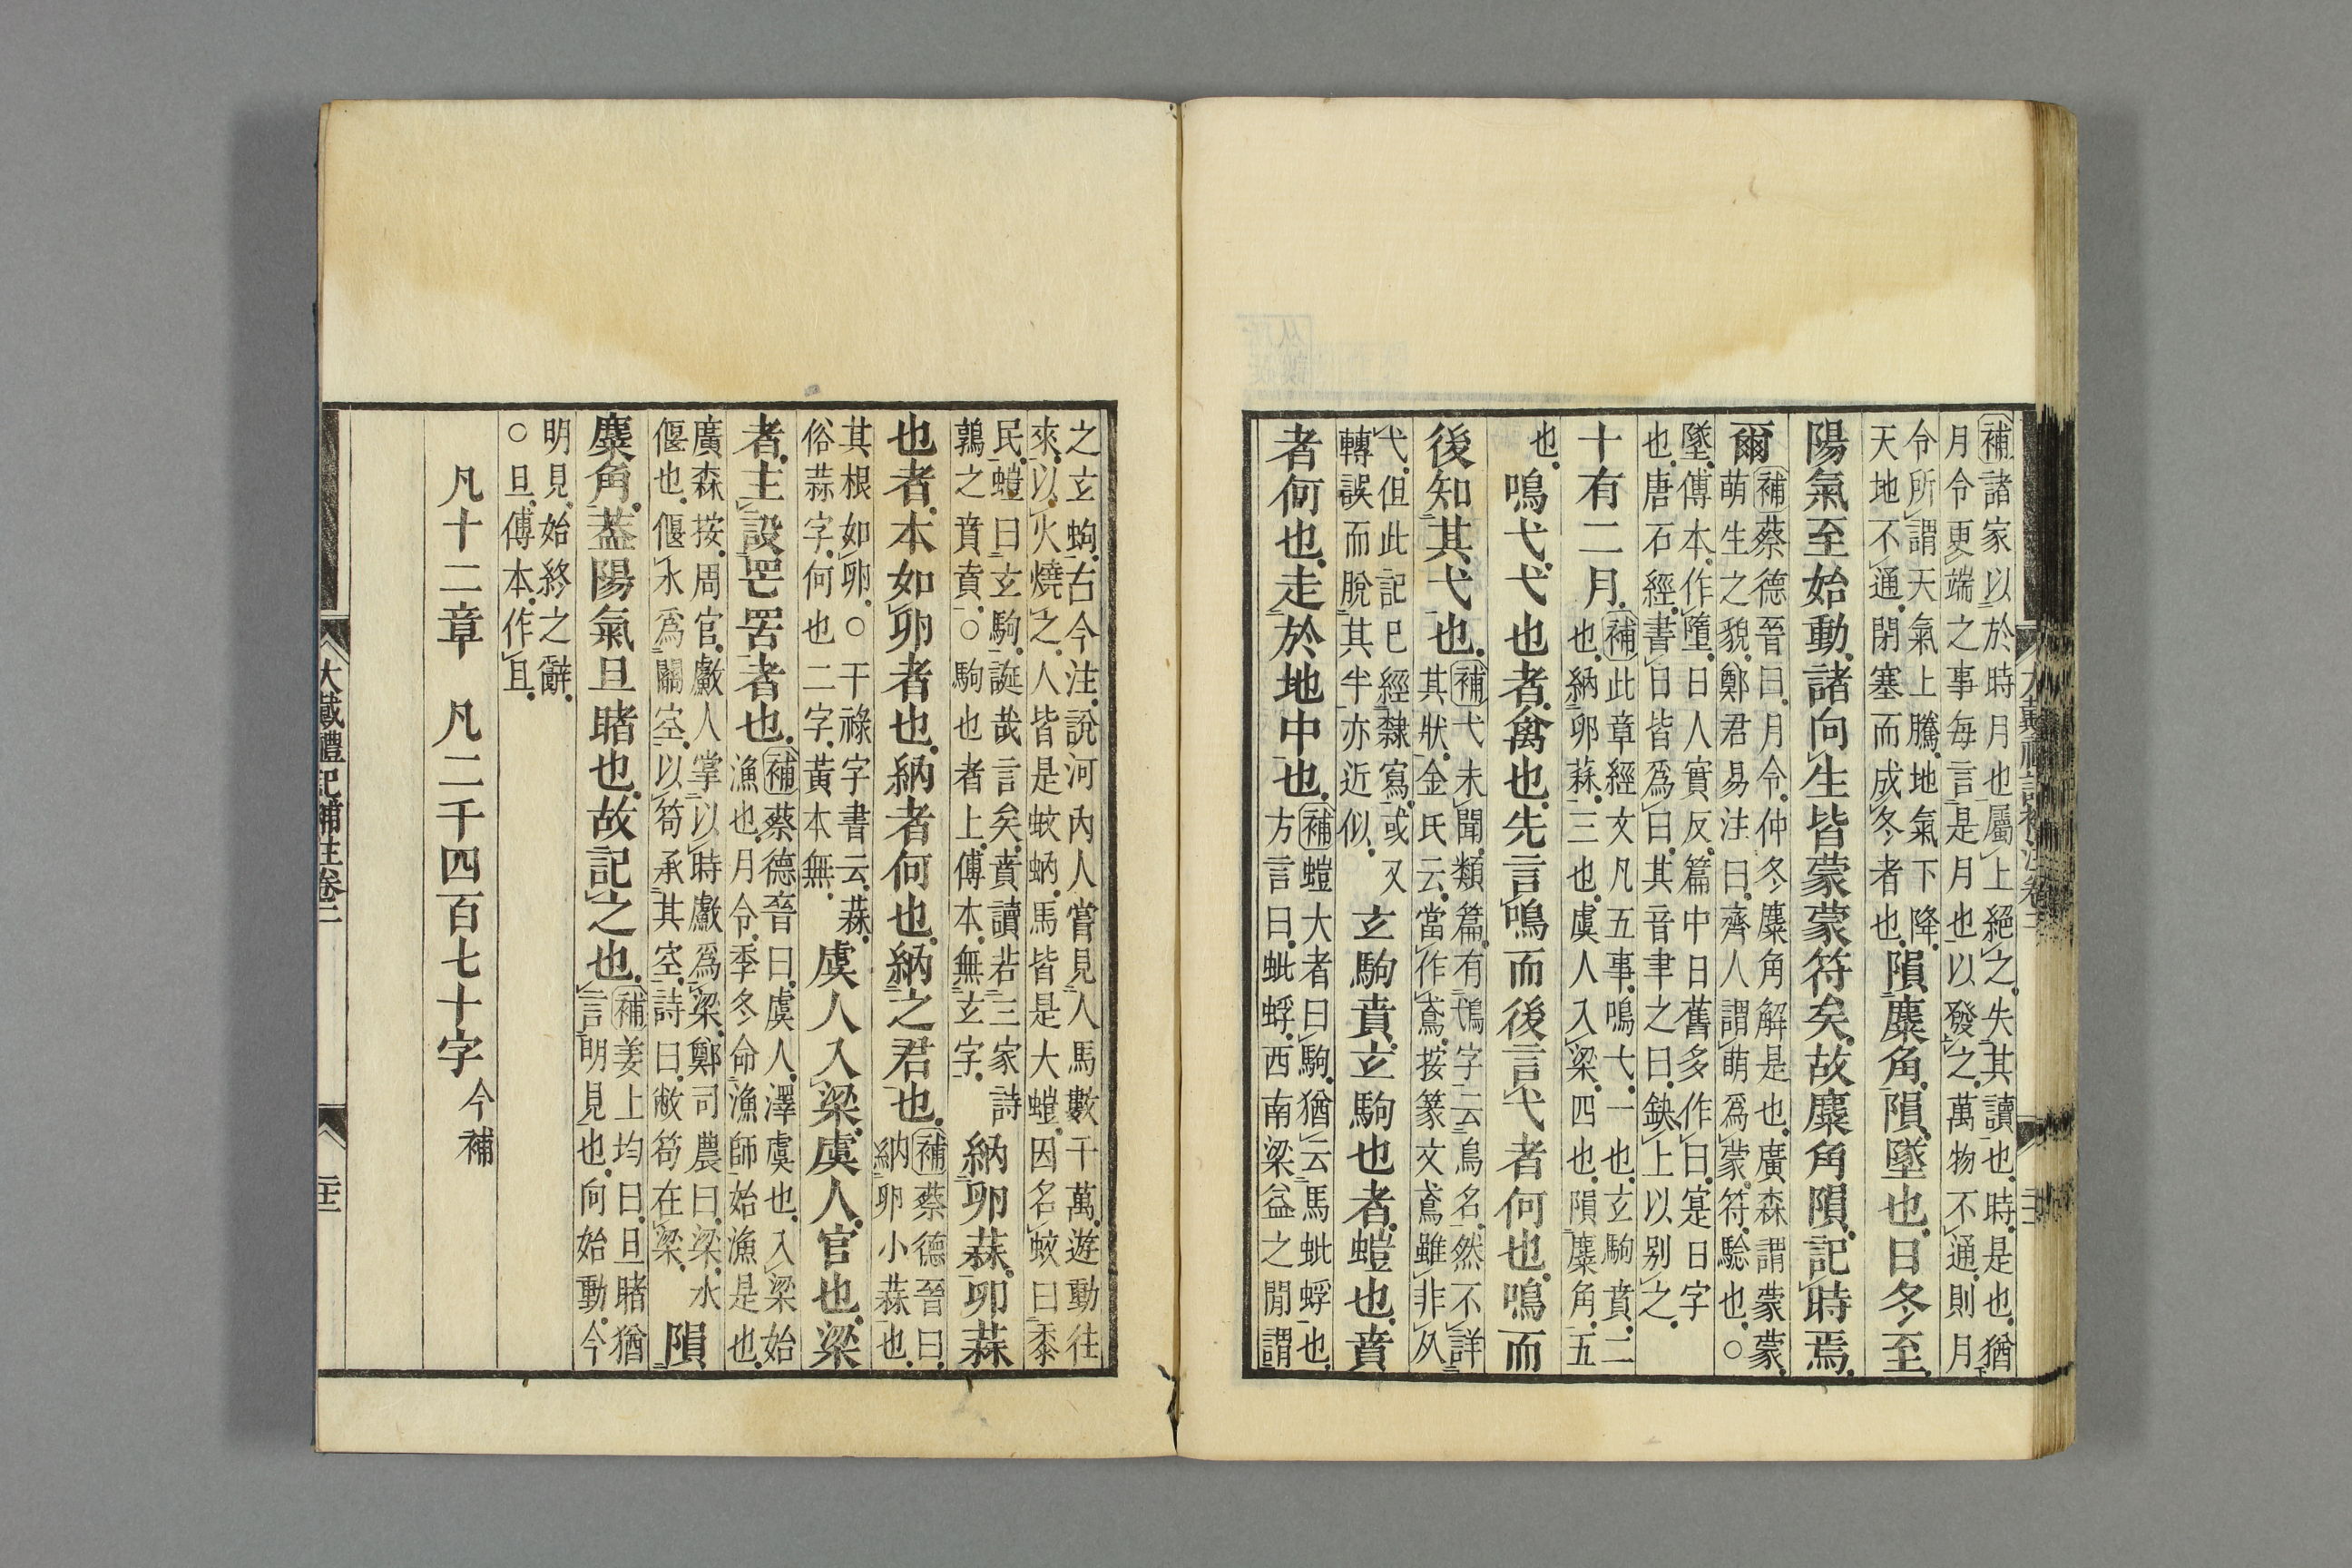 補諸家以於時月也屬上絕之失其讀也時是也猶
月令更端之事每言是月也以發之萬物不通則月
令所謂天氣上騰地氣下降
天地不通閉塞而成冬者也
隕麋角隕墜也日冬至
陽氣至始動諸向生皆蒙蒙符矣故麋角隕記時焉
爾
補蔡德晉曰月令仲冬麋角解是也廣森謂蒙蒙
萌生之貌鄭君易注曰齊人謂萌爲蒙符驗也○
墜傅本作墮日人實反篇中日舊多作曰寔日字
也唐石經書日皆爲曰其音聿之曰鈌上以別之
十有二月
補此章經文凡五事鳴弋一也玄駒賁二
也納卵蒜三也虞人入梁四也隕麋角五
也
鳴弋弋也者禽也先言鳴而後言弋者何也鳴而
後知其弋也
補弋未聞類篇有鳶字云鳥名然不詳
其狀金氏云當作鳶按篆文鳶雖非从
弋但此記巳經隸寫或又
轉誤而脫其半亦近似
玄駒賁玄駒也者螘也賁
者何也走於地中也
補螘大者曰駒猶云馬蚍蜉也
方言曰蚍蜉西南梁益之閒謂
之玄蚼古今注說河內人嘗見人馬數千萬遊動往
來以火燒之人皆是蚊蚋馬皆是大螘因名蚊曰黍
民螘曰玄駒誕哉言矣賁讀若三家詩
鶉之賁賁○駒也者上傅本無玄字
納卵蒜卵蒜
也者本如卵者也納者何也納之君也
補蔡德晉曰
納卵小蒜也
其根如卵○干祿字書云蒜
俗蒜字何也二字黃本無
虞人入梁虞人官也梁
者主設罔罟者也
補蔡德晉曰虞人澤虞也入梁始
漁也月令季冬命漁師始漁是也
廣森按周官䱷人掌以時䱷爲梁鄭司農曰梁水
偃也偃水爲關空以笱承其空詩曰敝笱在梁
隕
麋角蓋陽氣旦睹也故記之也
補姜上均曰旦睹猶
言明見也向始動今
明見始終之辭
○旦傅本作且
凡十二章　凡二千四百七十字
今補
大戴禮記補注卷二